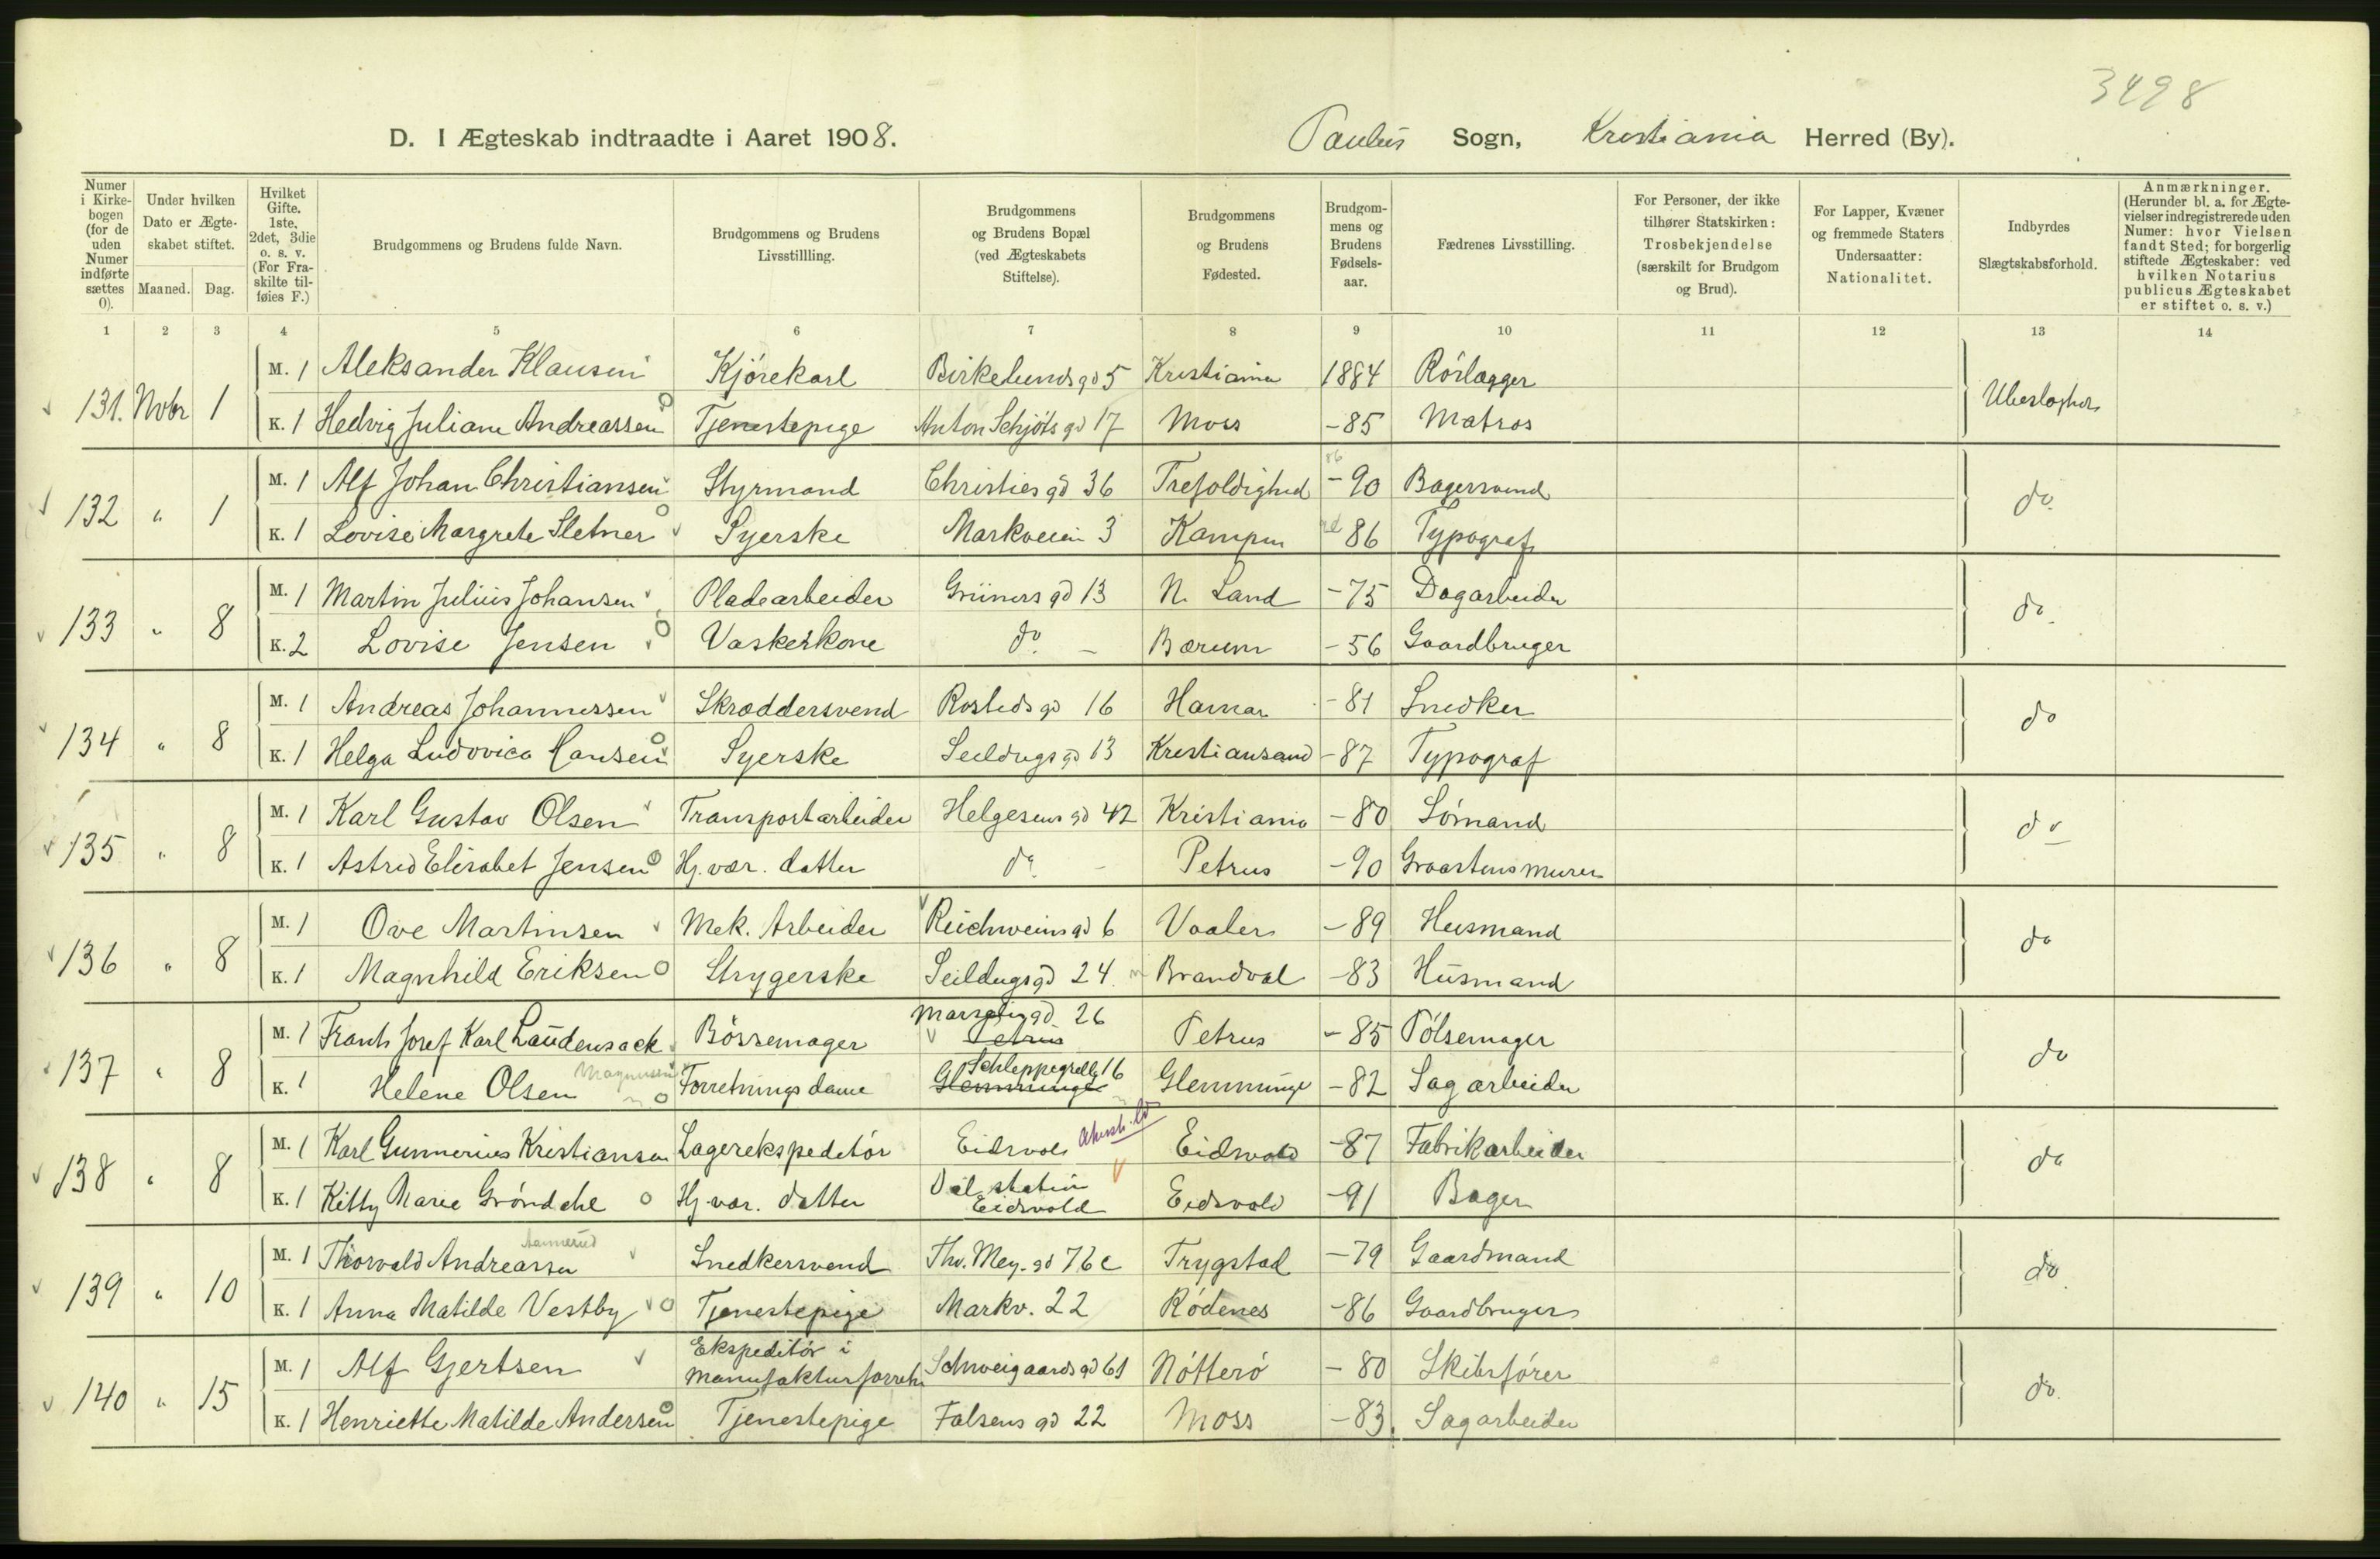 3498
D. I Ægteskab indtraadte i Aaret 1908. Paulus Sogn, Kristiania Herred (By).
Numer i Kirkebogen (for de uden Numer indførte sættes 0).
Under hvilken Dato er Ægteskabet stiftet.
Maaned. Dag.
Hvilket Gifte. 1ste, 2det, 3die o. s. v. (For Fraskilte tilføies F.)
Brudgommens og Brudens fulde Navn.
Brudgommens og Brudens Livsstillling.
Brudgommens og Brudens Bopæl (ved Ægteskabets Stiftelse).
Brudgommens og Brudens Fødested.
Brudgommens og Brudens Fødselsaar.
Fædrenes Livsstilling.
For Personer, der ikke tilhører Statskirken: Trosbekjendelse (særskilt for Brudgom og Brud).
For Lapper, Kvæner og fremmede Staters Undersaatter: Nationalitet.
Indbyrdes Slægtskabsforhold.
Anmærkninger. (Herunder bl. a. for Ægtevielser indregistrerede uden Numer: hvor Vielsen fandt Sted; for borgerlig stiftede Ægteskaber: ved hvilken Notarius publicus Ægteskabet er stiftet o. s. v.)
1 2 3 4 5 6 7 8 9 10 11 12 13 14
M. 1 Aleksander Klausen Kjörekarl Birkelundsgd 5 Kristiania 1884 Rörlægger
131. Novbr 1 Ubeslægtet
K. 1 Hedvig Juliane Andreassen Tjenestepige Anton Schjöts gd 17 Moss -85 Matros
M. 1 Alf Johan Christiansen Styrmand Christies gd 36 Trefoldighed -90 Bagersvend
132 " 1 do.
K. 1 Lovise Margrete Sletner Syerske Markveien 3 Kampen 86 Typograf
M. 1 Martin Julius Johansen Pladearbeider Grüners gd 13 N. Land -75 Dagarbeider
133 " 8 do.
K. 2 Lovise Jensen Vaskerkone do. - Bærum -56 Gaardbruger
M. 1 Andreas Johannessen Skræddersvend Rosteds gd 16 Hamar -81 Snedker
134 " 8 do
K. 1 Helga Ludovica Hansen Syerske Seildugs gd 13 Kristiansand -87 Typograf
M. 1 Karl Gustav Olsen Transportarbeider Helgesens gd 42 Kristiania -80 Sömand
135 " 8 do
K. 1 Astrid Elisabet Jensen Hj. vær. datter do. - Petrus -90 Graastensmurer
M. 1 Ove Martinsen Mek. Arbeider Reichweins gd 6 Vaaler -89 Husmand
136 " 8 do
K. 1 Magnhild Eriksen Strygerske Seildugs gd 24 Brandval -83 Husmand
Marselis gd 26
M. 1 Frants Josef Karl Laudensack Bössemager Petrus Petrus -85 Pölsemager
137 " 8 do
Magnussen Schleppegrells 16
K. 1 Helene Olsen Forretningsdame Glemminge Glemminge -82 Sagarbeider
M. 1 Karl Gunnerius Kristiansen Lagerekspeditör Eidsvold Akersh. Eidsvold -87 Fabrikarbeider
138 " 8 do
K. 1 Kitty Marie Gröndahl Hj. vær. datter Dal station Eidsvold Eidsvold -91 Bager
Aamerud
M. 1 Thorvald Andreassen Snedkersvend Thv. Mey. gd 76c Trygstad -79 Gaardmand
139 " 10 do.
K. 1 Anna Matilde Vestby Tjenestepige Markv. 22 Rödenes -86 Gaardbruger
M. 1 Alf Gjertsen Ekspeditör i Manufakturforretn Schweigaards gd 61 Nötterö -80 Skibsförer
140 " 15 do.
K. 1 Henriette Matilde Andersen Tjenestepige Falsens gd 22 Moss -83 Sagarbeider